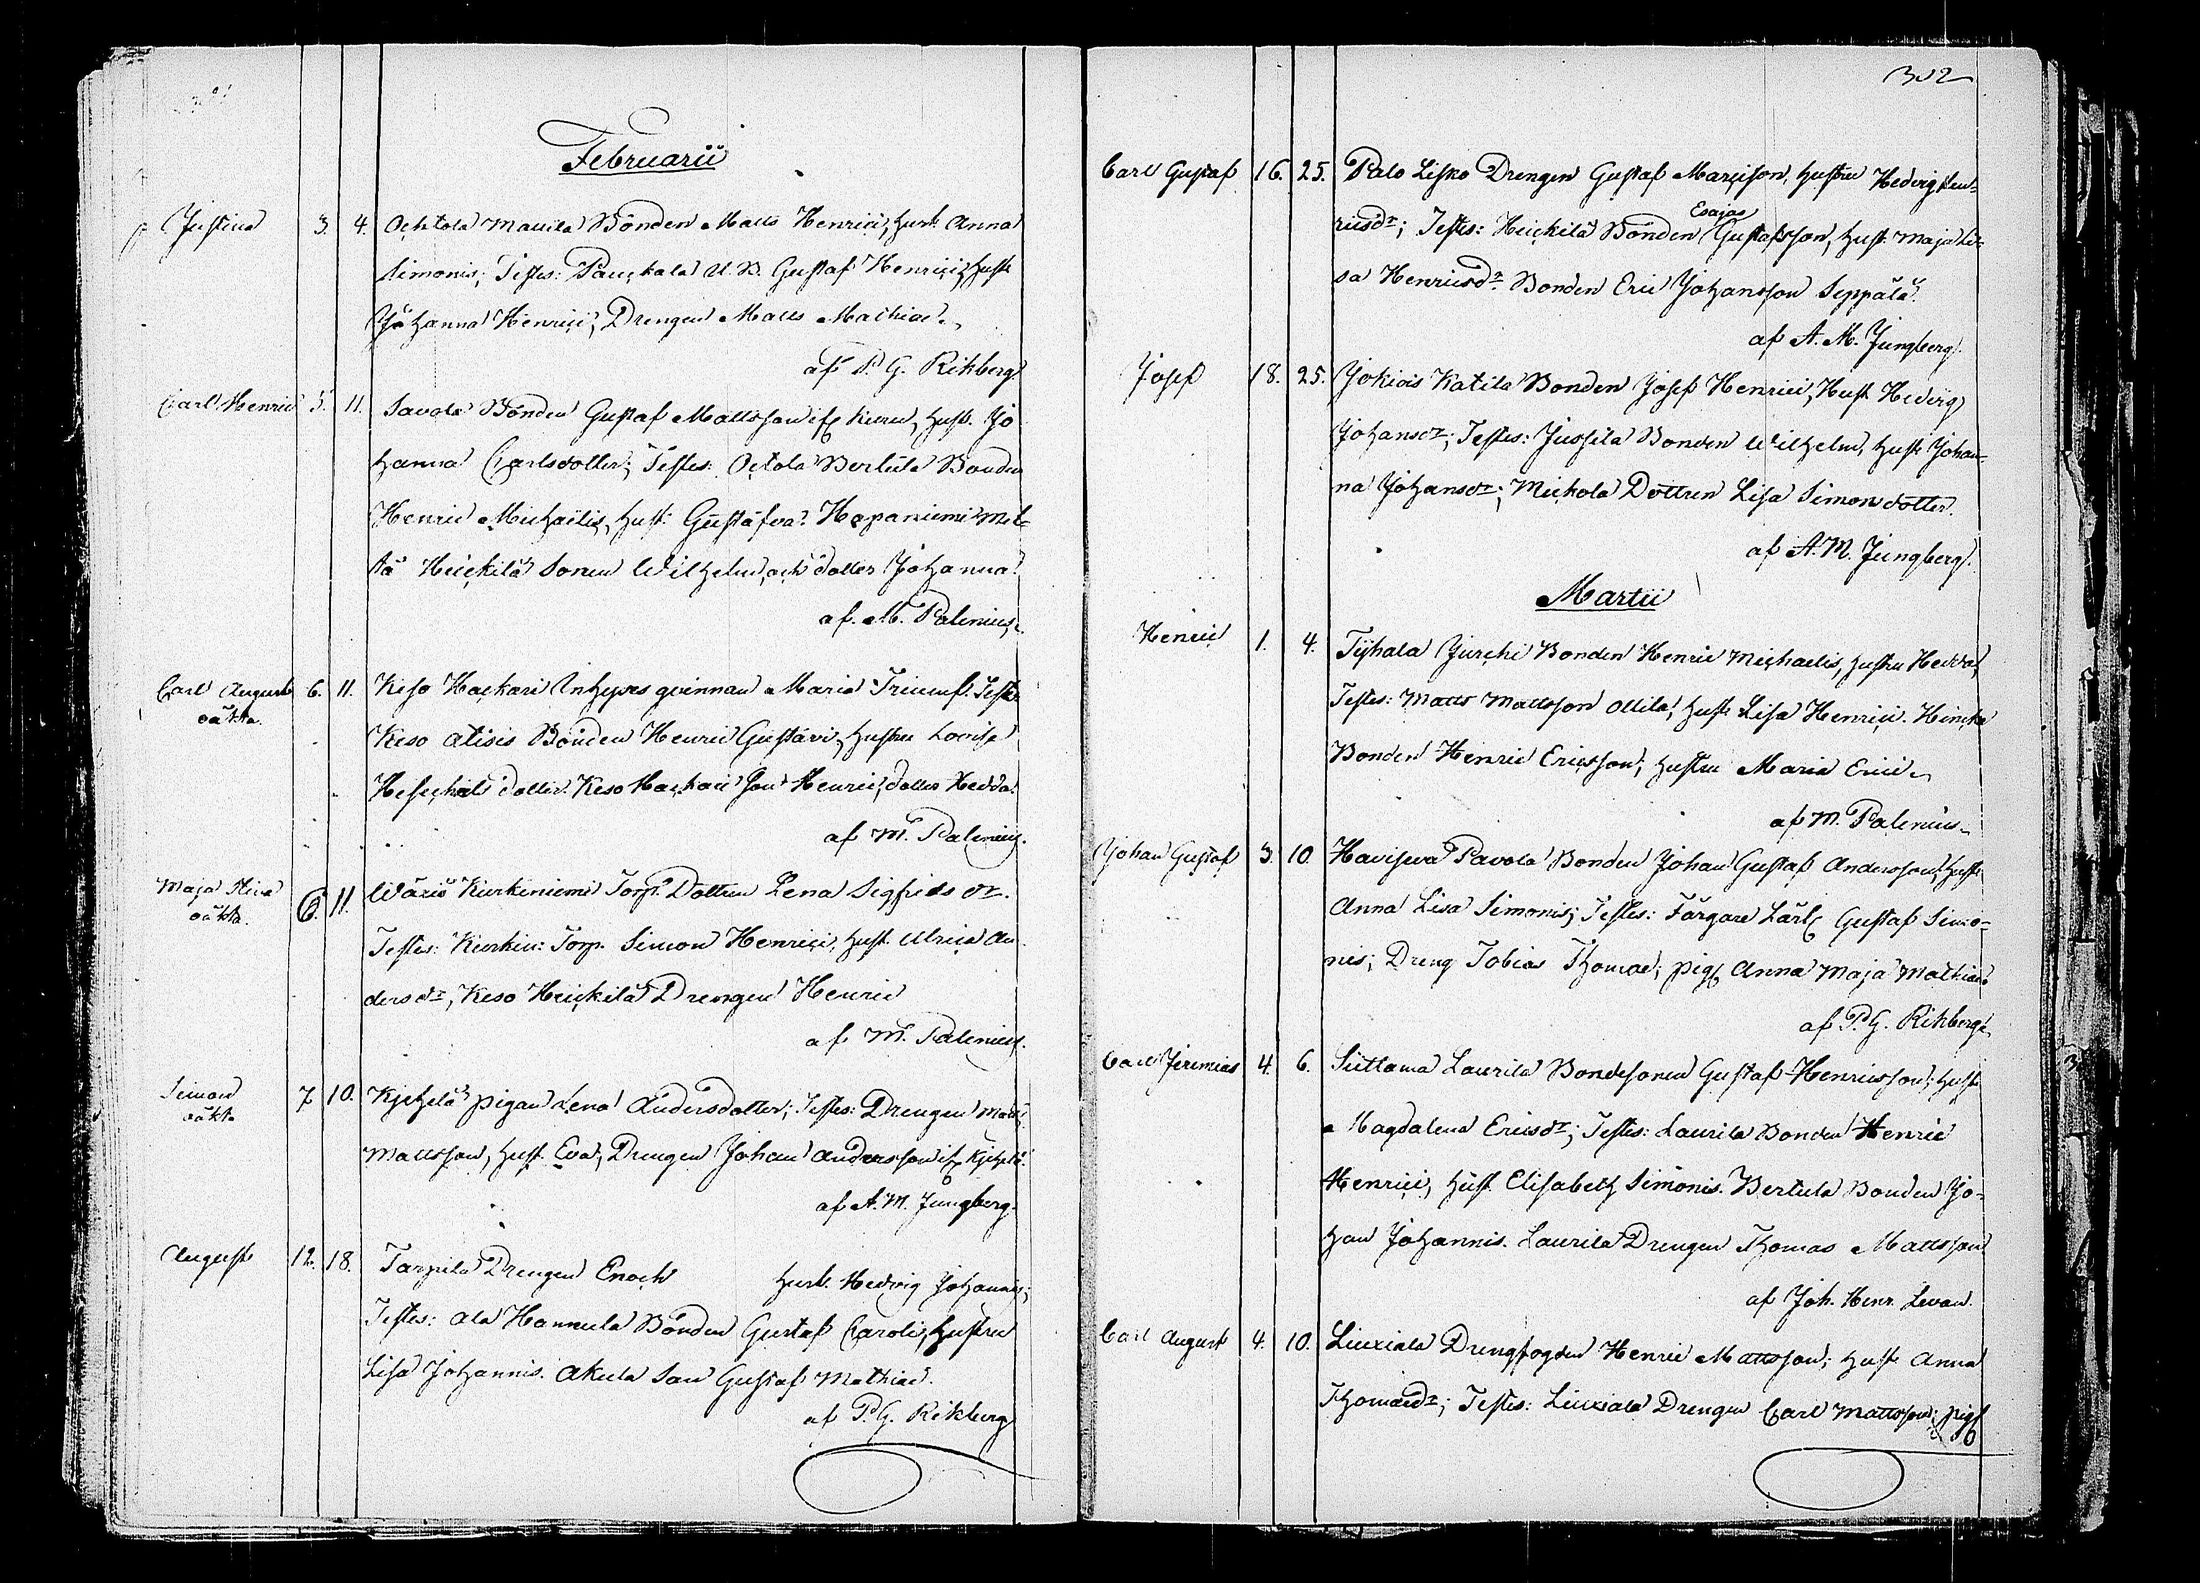 Februarii
Justina 3. 4. Ochtola Mauila Bonden Matts Henrici, Hust. Anna
Simonis; Testes: Pauckala U. B. Gustaf Henrici, Hustr
Johanna Henrici, Drengen Matts Mathiae.
af P. G. Rikberg.
Carl Henric 5. 11. Savola Bonden Gustaf Mattsson ifr Kuru, Hust. Jo
hanna Carlsdotter; Testes: Octola Bertula Bonden
Henric Michaëlis, Hust: Gustafva. Hapaniemi Met-
tä Heickilä Sonen Wilhelm, och dotter Johanna.
af. M. Palenius.
Carl August 6. 11. Keso Hackari Inhyses qvinnan Maria Triumf. Testes
oäkta.
Keso Atisis Bonden Henric Gustavi, Hustru Lovisa
dotter. Keso Hackari Son Henric, dotter Hedda.
af M. Palenius.
Maja Stina 6. 11. Wäriö Kurkiniemi Torp. Dottren Lena Sigfrids dr.
oäkta.
Testes: Kurkin: Torp. Simon Henrici, Hust. Ulrica An-
dersdr, Keso Heickilä Drengen Henric
af M. Palenius.
Simon 7. 10. Kjehelä pigan Lena Andersdotter; Testes: Drengen Matts
oäkta
Mattsson, Hust. Eva, Drengen Johan Andersson ifr Kjehelä.
af A. M. Jungberg.
August 12. 18. Tarpila Drengen Enoch Hust. Hedvig Johannis;
Testes: Ala Hannula Bonden Gustaf Caroli, Hustru
Lisa Johannis. Akula Son Gustaf Mathiae.
af P. G. Rikberg
302
Carl Gustaf 16. 25. Palo Lisko Drengen Gustaf Marcisson, Hustru Hedvig Hen-
ricsdr; Testes: Heickilä Bonden Esajas Gustafsson, Hust. Maja Li-
sa Henricsdr. Bonden Eric Johansson Seppälä.
af A. M. Jungberg.
Josef 18. 25. Jokiois Katila Bonden Josef Henrici, Hust Hedvig
Johansdr; Testes: Jussila Bonden Wilhelm, Hustr Johan-
na Johansdr; Mickola Dottren Lisa Simonsdotter.
af A. M. Jungberg.
Martii
Henric 1. 4. Tyhala Jurcki Bonden Henric Michaelis, Hustru Hedda,
Testes: Matts Mattsson Ollila, Hustr Lisa Henrici. Hincka
Bonden Henric Ericsson, Hustru Maria Erici.
af M. Palenius.
Johan Gustaf 3. 10. Havisevа Pavola Bonden Johan Gustaf Andersson, Hustr
Anna Lisa Simonis; Testes: Färgare Lärl: Gustaf Simo-
nis; Dreng Tobias Thomae; pig: Anna Maja Mathiae.
af P. G. Rikberg.
Carl Jeremias 4. 6. Suttama Laurila Bondesonen Gustaf Henricsson; Hustr
Magdalena Ericsdr; Testes: Laurila Bonden Henric
Henrici, Hust. Elisabeth Simonis. Bertula Bonden Jo-
han Johannis. Laurila Drengen Thomas Mattsson
af Joh. Henr. Levan.
Carl August 4. 10. Liuxiala Drengfogden Henric Mattsson; Hustr Anna
Thomaedr; Testes: Liuxiala Drengen Carl Mattsson; pig: